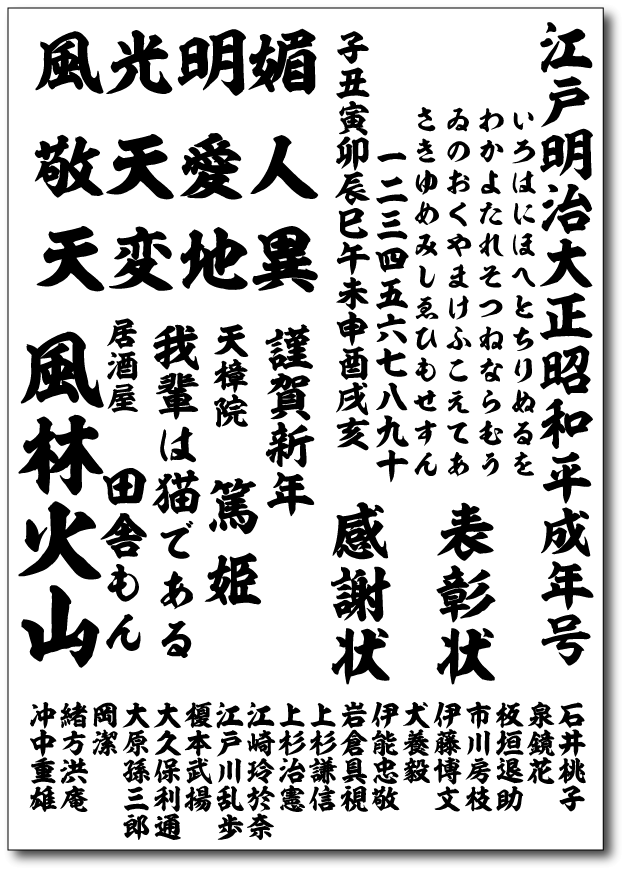 江戸明治大正昭和平成年号
いろはにほへとちりぬるを
わかよたれそつねならむう
ゐのおくやまけふこえてあ
さきゆめみしゑひもせすん
一二三四五六七八九十
子丑寅卯辰巳午未申酉戌亥
風光明媚
敬天愛人
天変地異
表彰状
感謝状
謹賀新年
天樟院 篤姫
我輩は猫である
居酒屋 田舎もん
風林火山
石井桃子
泉鏡花
板垣退助
市川房枝
伊藤博文
犬養毅
伊能忠敬
岩倉具視
上杉謙信
上杉治憲
江崎玲於奈
江戸川乱歩
榎本武揚
大久保利通
大原孫三郎
岡潔
緒方洪庵
沖中重雄